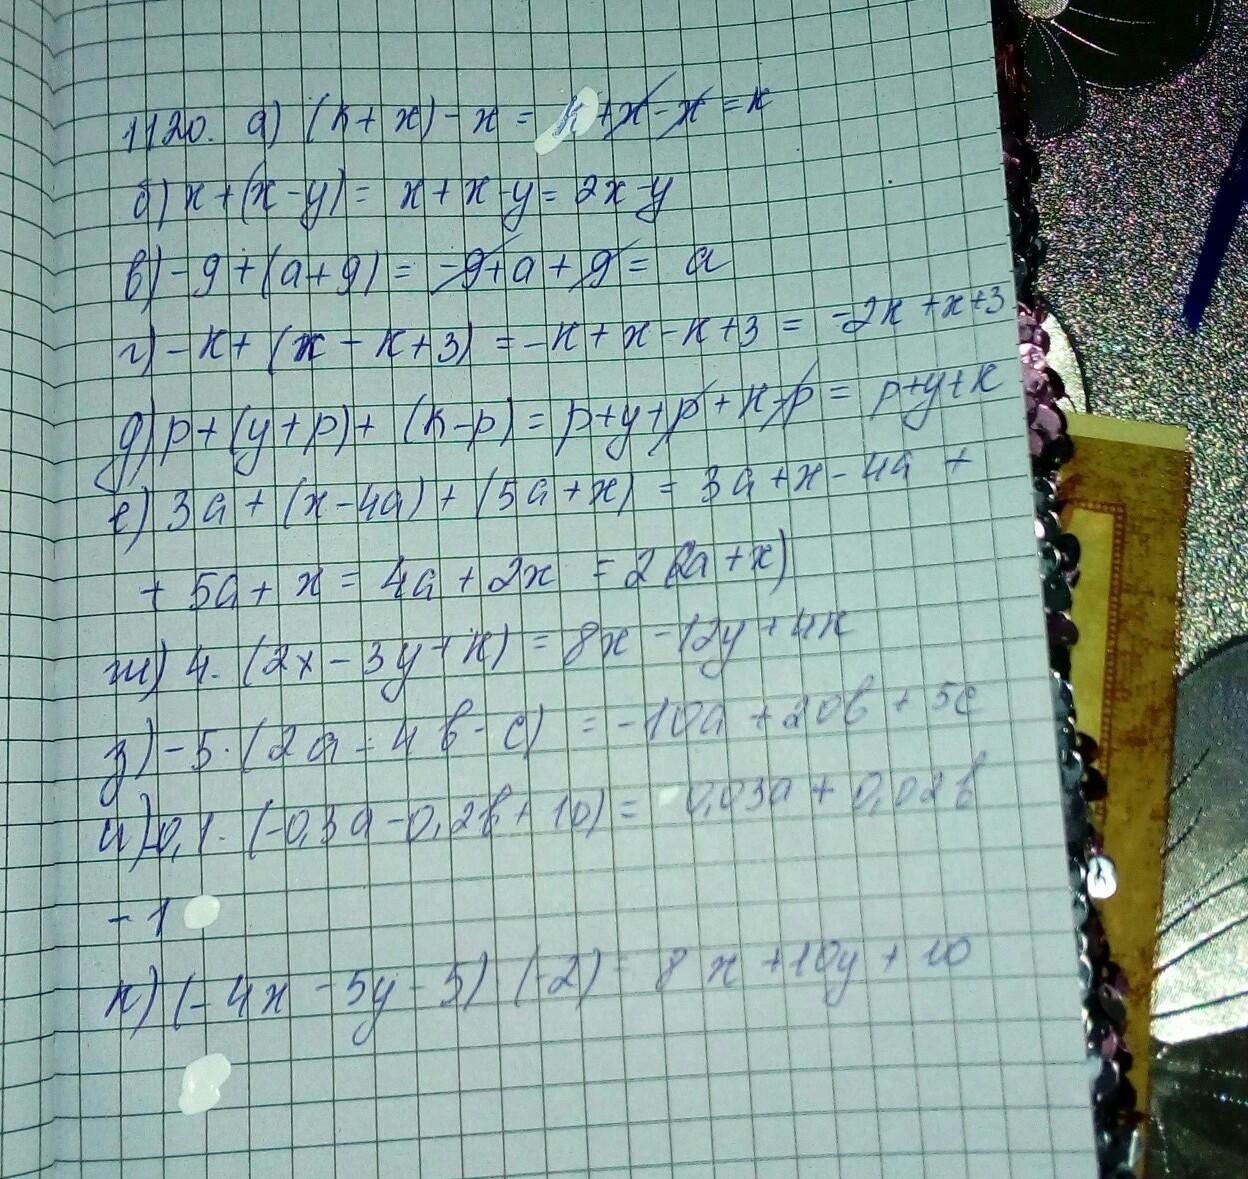 1120. а) (k + x) - x = k + x - x = k
б) x + (x - y) = x + x - y = 2x - y
в) - g + (a + g) = - g + a + g = a
г) - k + (x - k + 3) = - k + x - k + 3 = -2k + x + 3
д) p + (y + p) + (k - p) = p + y + p + k - p = p + y + k
е) 3a + (x - 4a) + (5a + x) = 3a + x - 4a +
+ 5a + x = 4a + 2x = 2(2a + x)
ж) 4 · (2x - 3y + k) = 8x - 12y + 4k
з) - 5 · (2a - 4b - c) = - 10a + 20b + 5c
и) -0,1 · (-0,3a - 0,2b + 10) = 0,03a + 0,02b
- 1
к) (- 4x - 5y - 5) · (-2) = 8x + 10y + 10